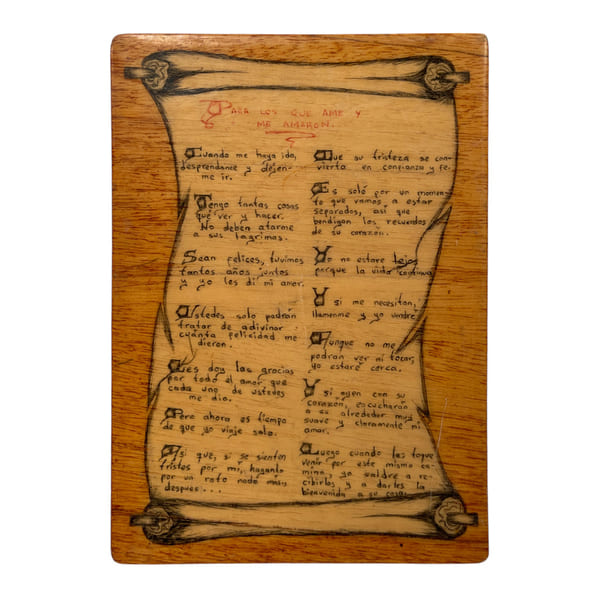 Para los que ame y
me amaron.
Cuando me haya ido,
desprendanse y dejen-
me ir.
Tengo tantas cosas
que ver y hacer.
No deben atarme
a sus lagrimas.
Sean felices, tuvimos
tantos años juntos
y yo les di mi amor.
Ustedes solo podrán
tratar de adivinar
cuánta felicidad me
dieron.
Les doy las gracias
por todo el amor que
cada uno de ustedes
me dio.
Pero ahora es tiempo
de que yo viaje solo.
Asi que, si se sienten
tristes por mi, haganlo
por un rato nada más
despues...
Que su tristeza se con-
vierta en confianza y fe.
Es solo por un momen-
to que vamos, a estar
separados, asi que
bendigan los recuerdos
de su corazón.
Yo no estare lejos
porque la vida continua
Y si me necesitan,
llamenme y yo vendre.
Aunque no me
podran ver ni tocar,
yo estaré cerca.
Y si oyen con su
corazón, escucharán
a su alrededor muy
suave y claramente mi
amor.
Luego cuando les toque
venir por este mismo ca-
mino, yo saldre a re-
cibirlos y a darles la
bienvenida a su casa.